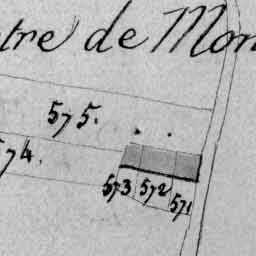 tre de Mon
575.
574.
573 572 571